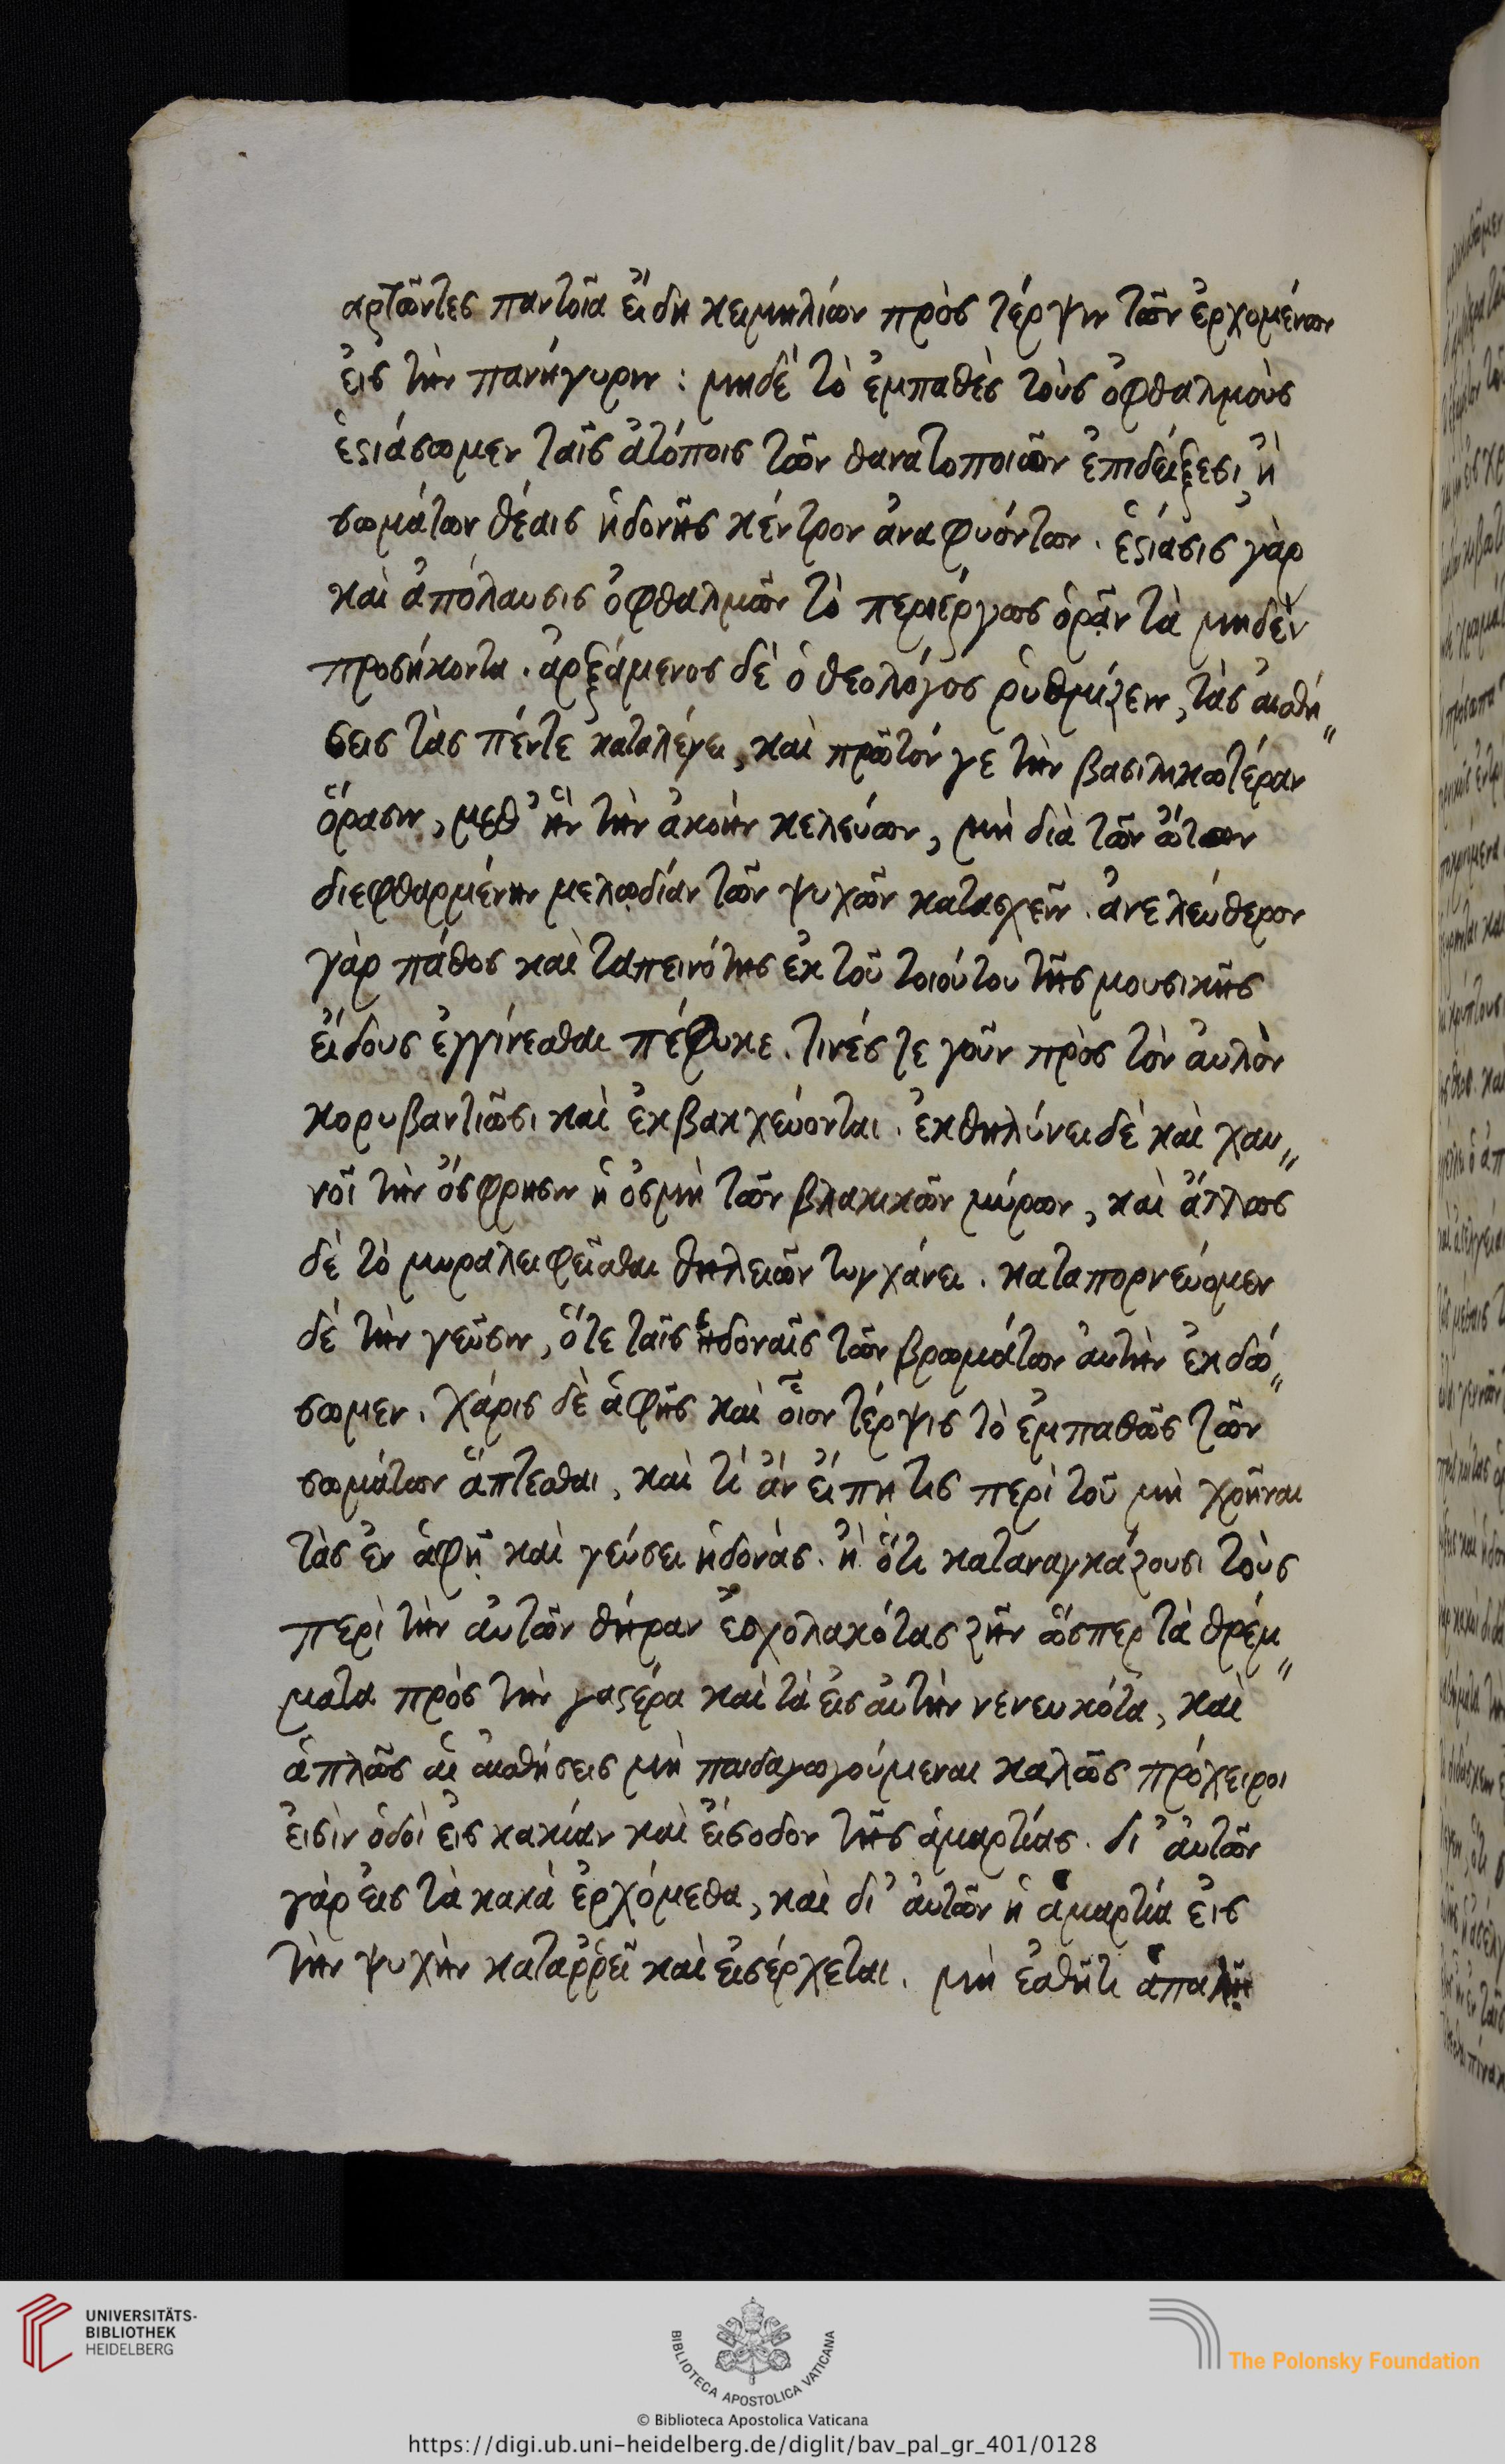 αρτῶντες παντοῖα εἴδη κειμηλίων πρὸς τέρψιν τῶν ἐρχομένων
εἰς τὴν πανήγυριν : μηδὲ τὸ ἐμπαθὲς τοὺς ὀφθαλμοὺς
ἑστιάσωμεν ταῖς ἀτόποις τῶν θανατοποιῶν ἐπιδείξεσι, ἢ
σωμάτων θέαις ἡδονῆς κέντρον ἀναφυόντων. ἑστίασις γὰρ
καὶ ἀπόλαυσις ὀφθαλμῶν τὸ περιέργως ὁρᾷν τὰ μηδὲν
προσήκοντα. ἀρξάμενος δὲ ὁ θεολόγος ῥυθμίζειν, τὰς αἰσθή
σεις τὰς πέντε καταλέγει, καὶ πρῶτόν γε τὴν βασιλικωτέραν
ὅρασιν, μεθ' ἣν τὴν ἀκοὴν κελεύων, μὴ διὰ τῶν ὤτων
διεφθαρμένην μελῳδίαν τῶν ψυχῶν κατασχεῖν. ἀνελεύθερον
γὰρ πάθος καὶ ταπεινότης ἐκ τοῦ τοιούτου τῆς μουσικῆς
εἴδους ἐγγίνεσθαι πέφυκε. τινές τε γοῦν πρὸς τὸν αὐλὸν
κορυβαντιῶσι καὶ ἐκβακχεύονται. ἐκθηλύνει δὲ καὶ χαυ
νοῖ τὴν ὄσφρησιν ἡ ὀσμὴ τῶν βλακικῶν μύρων, καὶ ἄλλως
δὲ τὸ μυραλειφεῖσθαι θηλειῶν τυγχάνει. καταπορνεύομεν
δὲ τὴν γεῦσιν, ὅτε ταῖς ἡδοναῖς τῶν βρωμάτων αὐτὴν ἐκδώ
σωμεν. χάρις δὲ ἁφῆς καὶ οἷον τέρψις τὸ ἐμπαθῶς τῶν
σωμάτων ἅπτεσθαι, καὶ τί ἂν εἴπη τις περὶ τοῦ μὴ χρῆναι
τὰς ἐν ἁφῇ καὶ γεύσει ἡδονάς. ἢ ὅτι καταναγκάζουσι τοὺς
περὶ τὴν αὐτῶν θήραν ἐσχολακότας ζῆν ὥσπερ τὰ θρέμ
ματα πρὸς τὴν γαστέρα καὶ τὰ εἰς αὐτὴν νενευκότα, καὶ
ἁπλῶς αἱ αἰσθήσεις μὴ παιδαγωγούμεναι καλῶς πρόχειροι
εἰσὶν ὁδοὶ εἰς κακίαν καὶ εἴσοδον τῆς ἁμαρτίας. δι' αὐτῶν
γὰρ εἰς τὰ κακὰ ἐρχόμεθα, καὶ δι' αὐτῶν ἡ ἁμαρτία εἰς
τὴν ψυχὴν καταῤῥεῖ καὶ εἰσέρχεται. μὴ ἐσθῆτι ἁπαλῇ
UNIVERSITÄTS-
BIBLIOTHEK
HEIDELBERG
BIBLIOTECA APOSTOLICA VATICANA
The Polonsky Foundation
© Biblioteca Apostolica Vaticana
https://digi.ub.uni-heidelberg.de/diglit/bav_pal_gr_401/0128